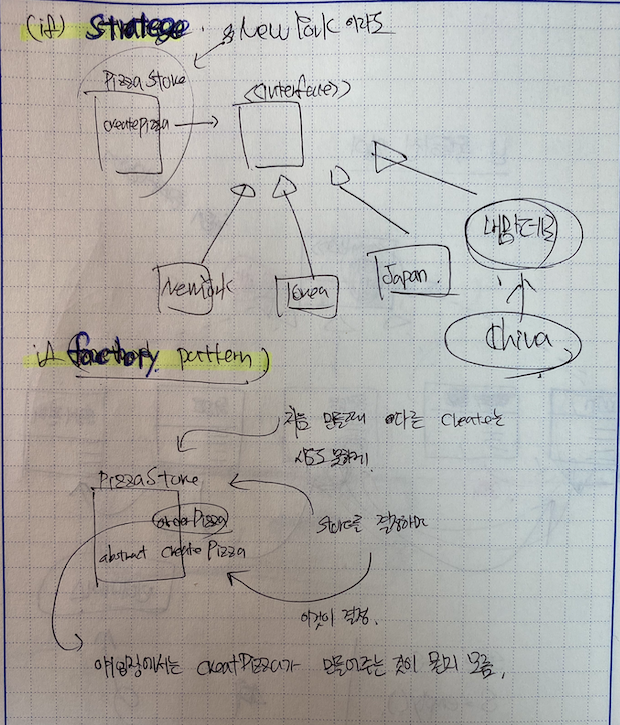 (if) Stratege. New York 이라도
Pizza Store
<<interface>>
createPizza
Newyork
Korea
Japan.
내맘대로
China
if factory pattern)
처음 만들때 다른 Create는
사용 못하게.
PizzaStore
orderPizza
abstract create Pizza
store를 결정하며
이것이 결정.
얘 입장에서는 creatPizza가 만들어주는 것이 뭔지 모름.